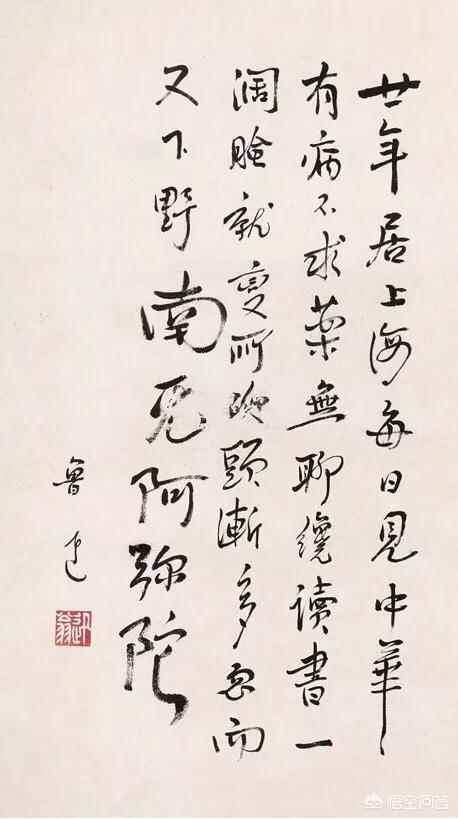 廿年居上海每日見中華
有病不求藥無聊纔讀書一
濶臉就變所砍頭漸多忽而
又下野南无阿弥陀
魯迅
迅翁
悟空问答